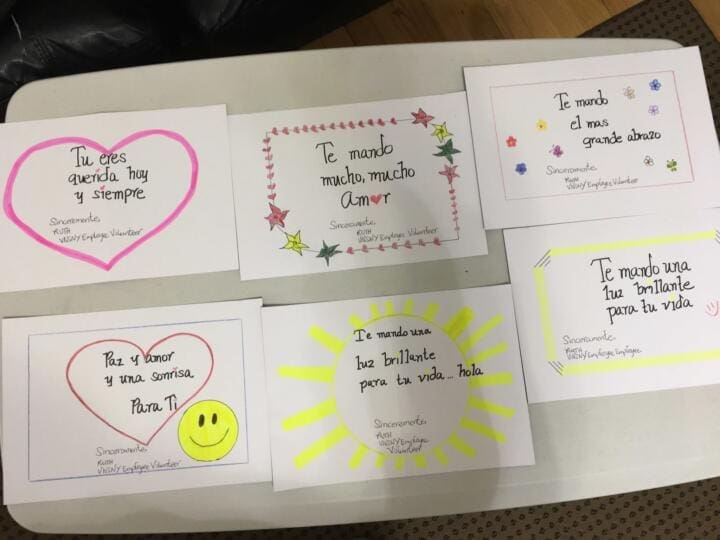 Tu eres
querida hoy
y siempre
Sinceramente,
RUTH
VNSNY Employee Volunteer
Te mando
mucho, mucho
Amor
Sinceramente,
RUTH
VNSNY Employee Volunteer
Te mando
el mas
grande abrazo
Sinceramente,
RUTH
VNSNY Employee Volunteer
Paz y amor
y una sonrisa
Para Ti
Sinceramente,
RUTH
VNSNY Employee Volunteer
Te mando una
luz brillante
para tu vida... hola
Sinceramente,
RUTH
VNSNY Employee
Volunteer
Te mando una
luz brillante
para tu vida
Sinceramente,
RUTH
VNSNY Employee Employee